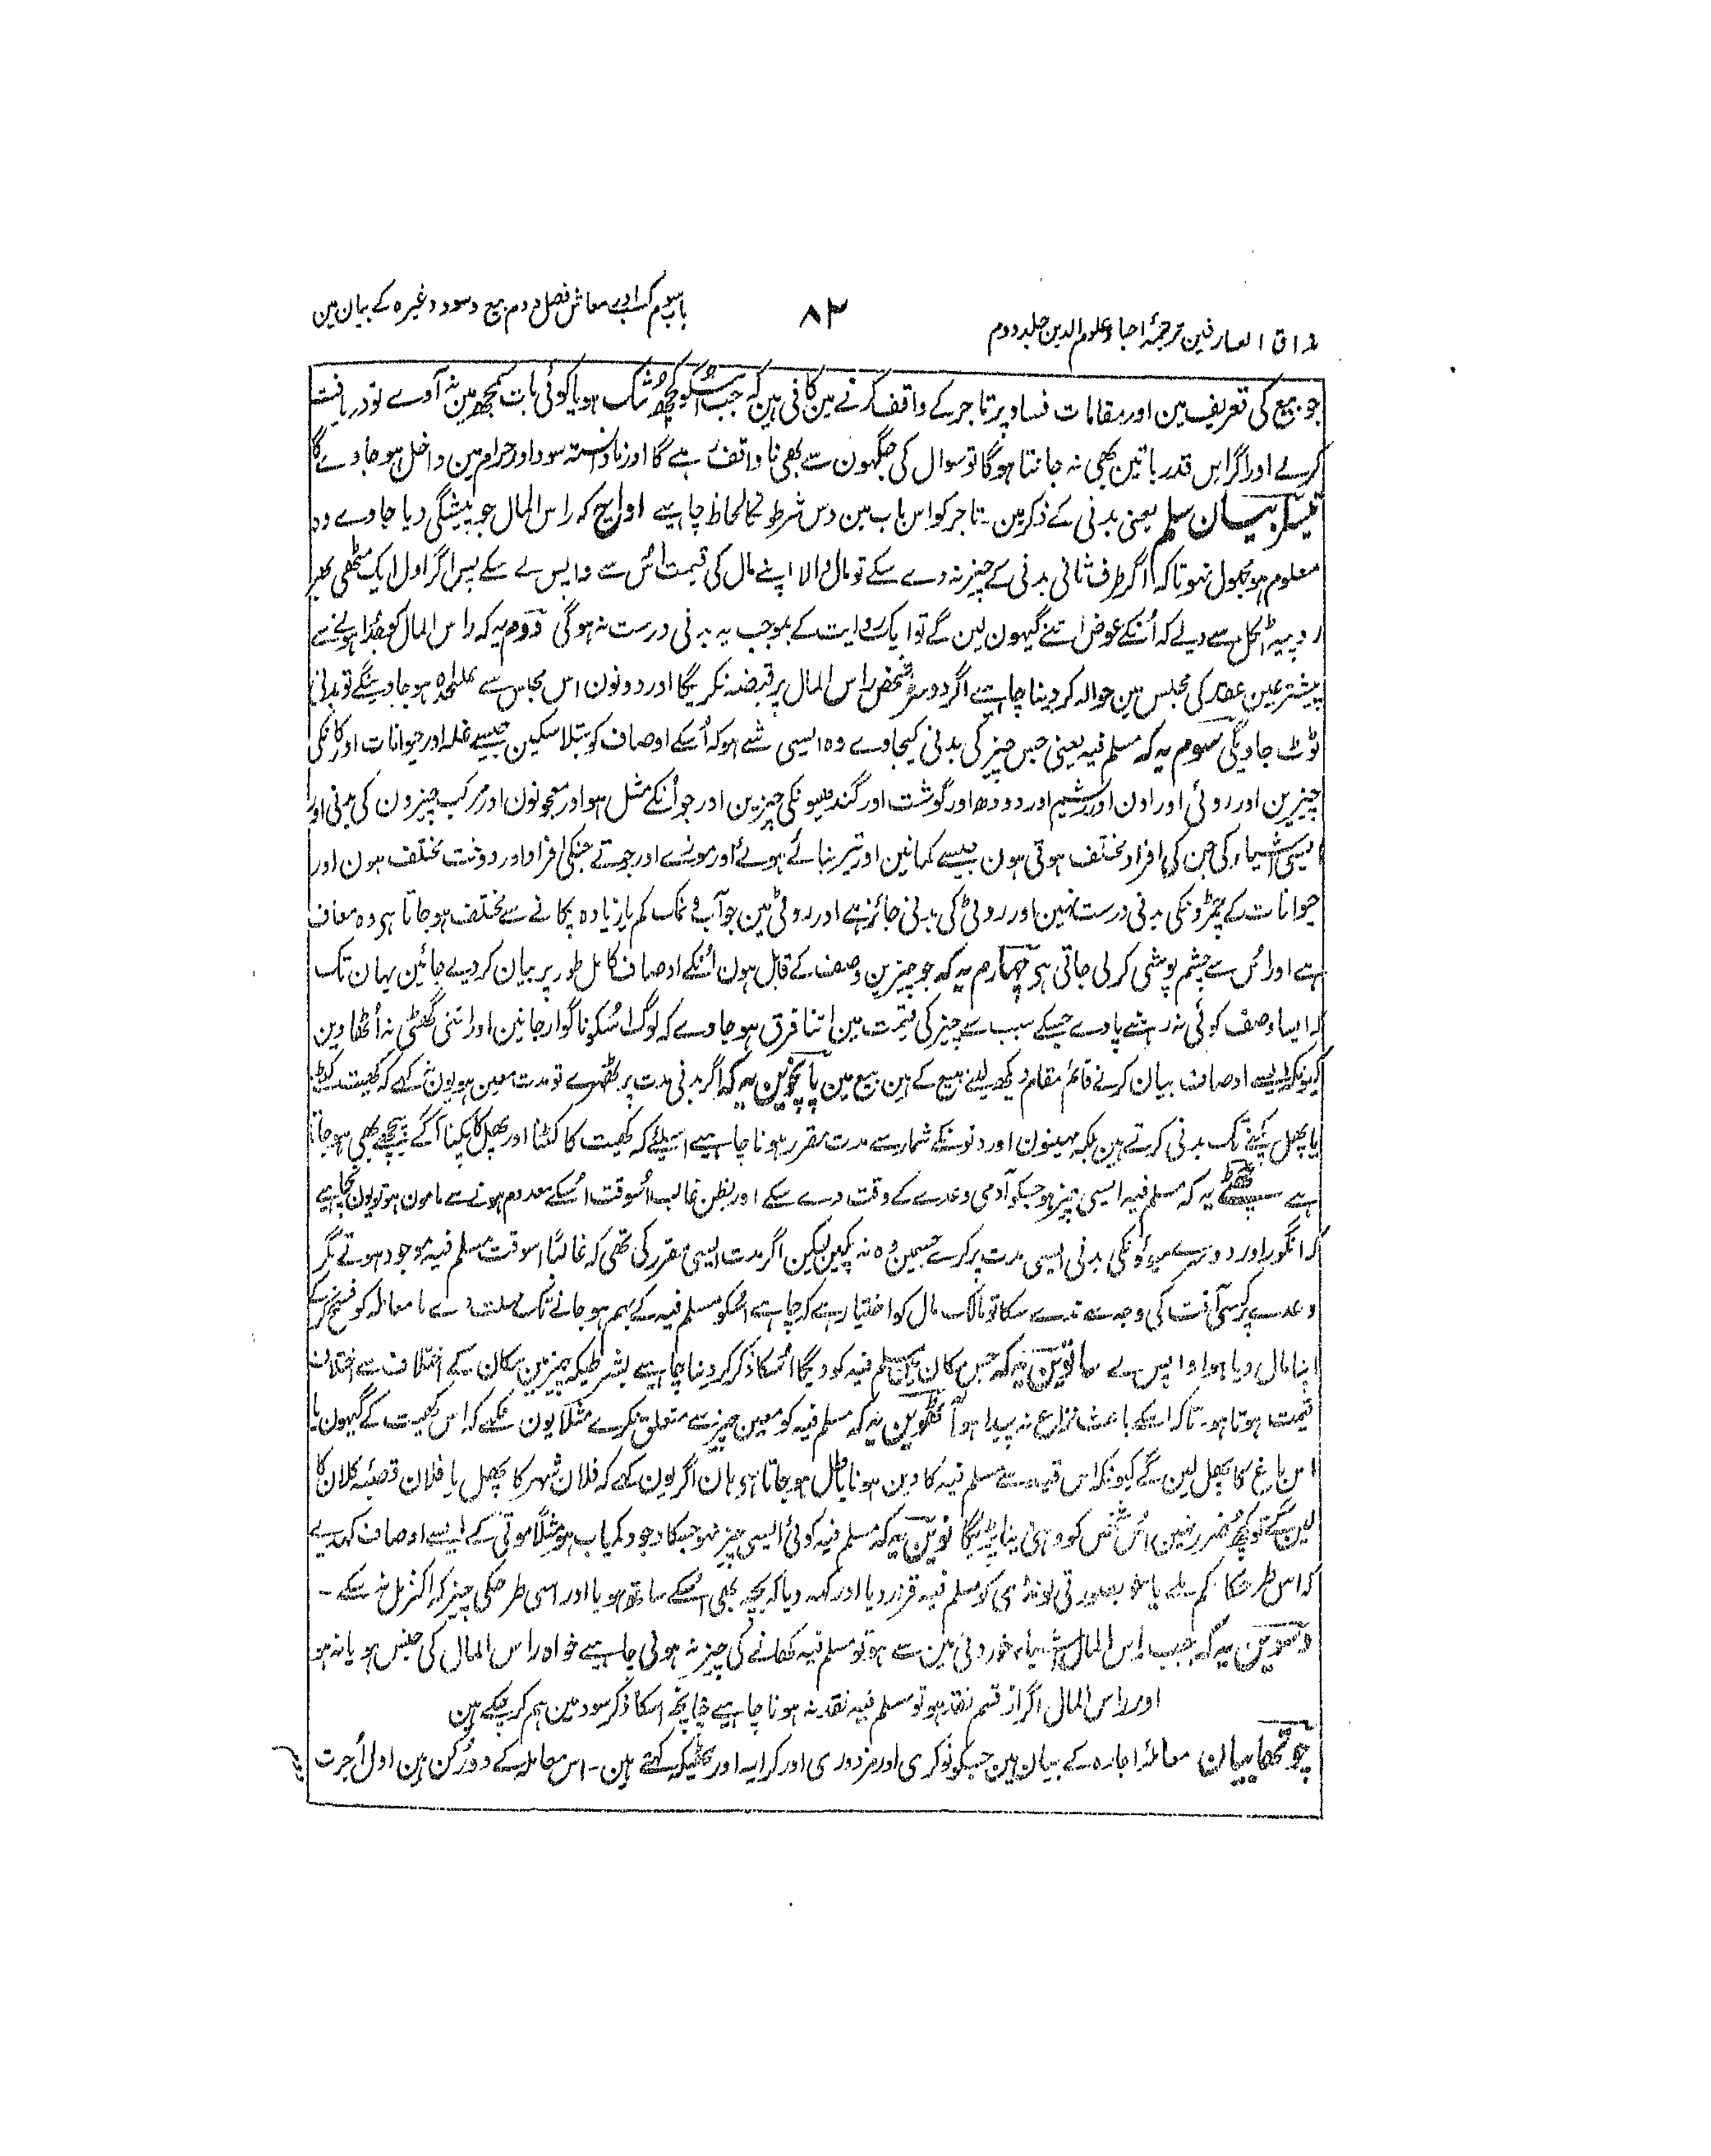 مذاق العارفین ترجمۂ احیاء علوم الدین جلد دوم
۸۲
باب سوم کسب اور معاش فصل دوم بیع و سود وغیرہ کے بیان مین
جو بیع کی تعریف مین اور مقامات فساد پر تاجر کے واقف کرنے مین کافی ہین کہ جب اُسکو کچھ شک ہو یا کوئی بات سمجھ مین نہ آوے تو دریافت
کرلے اور اگر اس قدر باتین بھی نہ جانتا ہو گا تو سوال کی جگہون سے بھی ناواقف رہے گا اور نادانستہ سود اور حرام مین داخل ہو جاوے گا
تیسرا بیان سلم یعنی بدنی کے ذکر مین - تاجر کو اس باب مین دس شرطونکا لحاظ چاہیے اول یہ کہ راس المال جو پیشگی دیا جاوے وہ
معلوم ہو مجہول نہو تاکہ اگر طرف ثانی بدنی کے چیز نہ دے سکے تو مال والا اپنے مال کی قیمت اُس سے واپس لے سکے پس اگر اول ایک مٹھی بھر
روپیہ اٹکل سے دیے کہ اُنکے عوض اتنے گیہون لین گے تو ایک روایت کے بموجب یہ بدنی درست نہ ہوگی دوم یہ کہ راس المال کو جدا ہونے سے
پیشتر عین عقد کی مجلس مین حوالہ کر دینا چاہیے اگر دوسرا شخص راس المال پر قبضہ نکریگا اور دونون اس مجلس سے علٰحدہ ہو جاوینگے تو بدنی
ٹوٹ جاویگی سوم یہ کہ مسلم فیہ یعنی جس چیز کی بدنی کیجاوے وہ ایسی شے ہو کہ اُسکے اوصاف کو بتلا سکین جیسے غلہ اور حیوانات اور کانکی
چیزین اور روئی اور اون اور ریشم اور دودھ اور گوشت اور گندھیونکی چیزین اور جو اُنکے مثل ہو اور معجونون اور مرکب چیزون کی بدنی اور
ایسی اشیاء کی جن کی افراد مختلف ہوتی ہون جیسے کمانین اور تیر بنائے ہوئے اور موزے اور جوتے جنکی افراد اور دوخت مختلف ہون اور
حیوانات کے چمڑونکی بدنی درست نہین اور روٹی کی بدنی جائز ہے اور روٹی مین جو آب و نمک کم یا زیادہ پکانے سے مختلف ہو جاتا ہی وہ معاف
ہے اور اُس سے چشم پوشی کر لی جاتی ہی چہارم یہ کہ جو چیزین وصف کے قابل ہون اُنکے اوصاف کامل طور پر بیان کر دیے جائین یہان تک
کہ ایسا وصف کوئی نہ رہنے پاوے جسکے سبب سے چیز کی قیمت مین اتنا فرق ہو جاوے کہ لوگ اُسکو ناگوار جانین اور اتنی گھٹی نہ اُٹھاوین
کیونکہ ایسے اوصاف بیان کرنے قائم مقام دیکھ لینے مبیع کے ہین بیع مین پانچوین یہ کہ اگر بدنی مدت پر ٹھہرے تو مدت معین ہو یون نہ کہے کہ کھیت کٹے
یا پھل پکنے تک بدنی کرتے ہین بلکہ مہینون اور دنونکے شمار سے مدت مقرر ہونا چاہیے اسلیے کہ کھیت کا کٹنا اور پھل کا پکنا آگے پیچھے بھی ہو جاتا
ہے چھٹے یہ کہ مسلم فیہ ایسی چیز ہو جسکو آدمی وعدے کے وقت دے سکے اور بظن غالب اُسوقت اُسکے معدوم ہونے سے مامون ہو تو یون نچاہیے
کہ انگور اور دوسرے میوونکی بدنی ایسی مدت پر کرے جسمین وہ نہ پکین لیکن اگر مدت ایسی مقرر کی تھی کہ غالباً اسوقت مسلم فیہ موجود ہوتے مگر
وعدے پر کسی آفت کی وجہ سے ندے سکا تو مالک مال کو اختیار ہے کہ چاہے اُسکو مسلم فیہ کے بہم ہو جانے تک مہلت دے یا معاملہ کو فسخ کرکے
اپنا مال دیا ہوا واپس لے ساتوین یہ کہ جس مکان مین مسلم فیہ کو دیگا اُسکا ذکر کر دینا چاہیے بشرطیکہ چیز مین مکان کے اختلاف سے اختلاف
قیمت ہوتا ہو - تاکہ اسکے باعث نزاع نہ پیدا ہو آٹھوین یہ کہ مسلم فیہ کو معین چیز سے متعلق نکرے مثلاً یون نکہے کہ اس کھیت کے گیہون یا
اس باغ کا پھل لین گے کیونکہ اس قید سے مسلم فیہ کا دین ہونا باطل ہو جاتا ہی ہان اگر یون کہے کہ فلان شہر کا پھل یا فلان قصبۂ کلان کا
لین گے تو کچھ ضرر نہین اُس شخص کو وہی دینا پڑیگا نوین یہ کہ مسلم فیہ کوئی ایسی چیز نہو جسکا وجود کمیاب ہو مثلاً موتی کے ایسے اوصاف کہدیے
کہ اس طرحکا کم ملے یا خوبصورت لونڈی کو مسلم فیہ قرار دیا اور کہہ دیا کہ بچہ بھی اُسکے ساتھ ہو یا اور اسی طرحکی چیز کہ اکثر مل نہ سکے -
دسوین یہ کہ جب راس المال اشیاء خوردنی مین سے ہو تو مسلم فیہ کھانے کی چیز نہ ہونی چاہیے خواہ راس المال کی جنس ہو یا نہ ہو
اور راس المال اگر از قسم نقد ہو تو مسلم فیہ نقد نہ ہونا چاہیے چنانچہ اسکا ذکر سود مین ہم کر چکے ہین
چوتھا بیان معاملۂ اجارہ کے بیان مین جسکو نوکری اور مزدوری اور کرایہ اور ٹھیکہ کہتے ہین - اس معاملہ کے دو رُکن ہین اول اُجرت